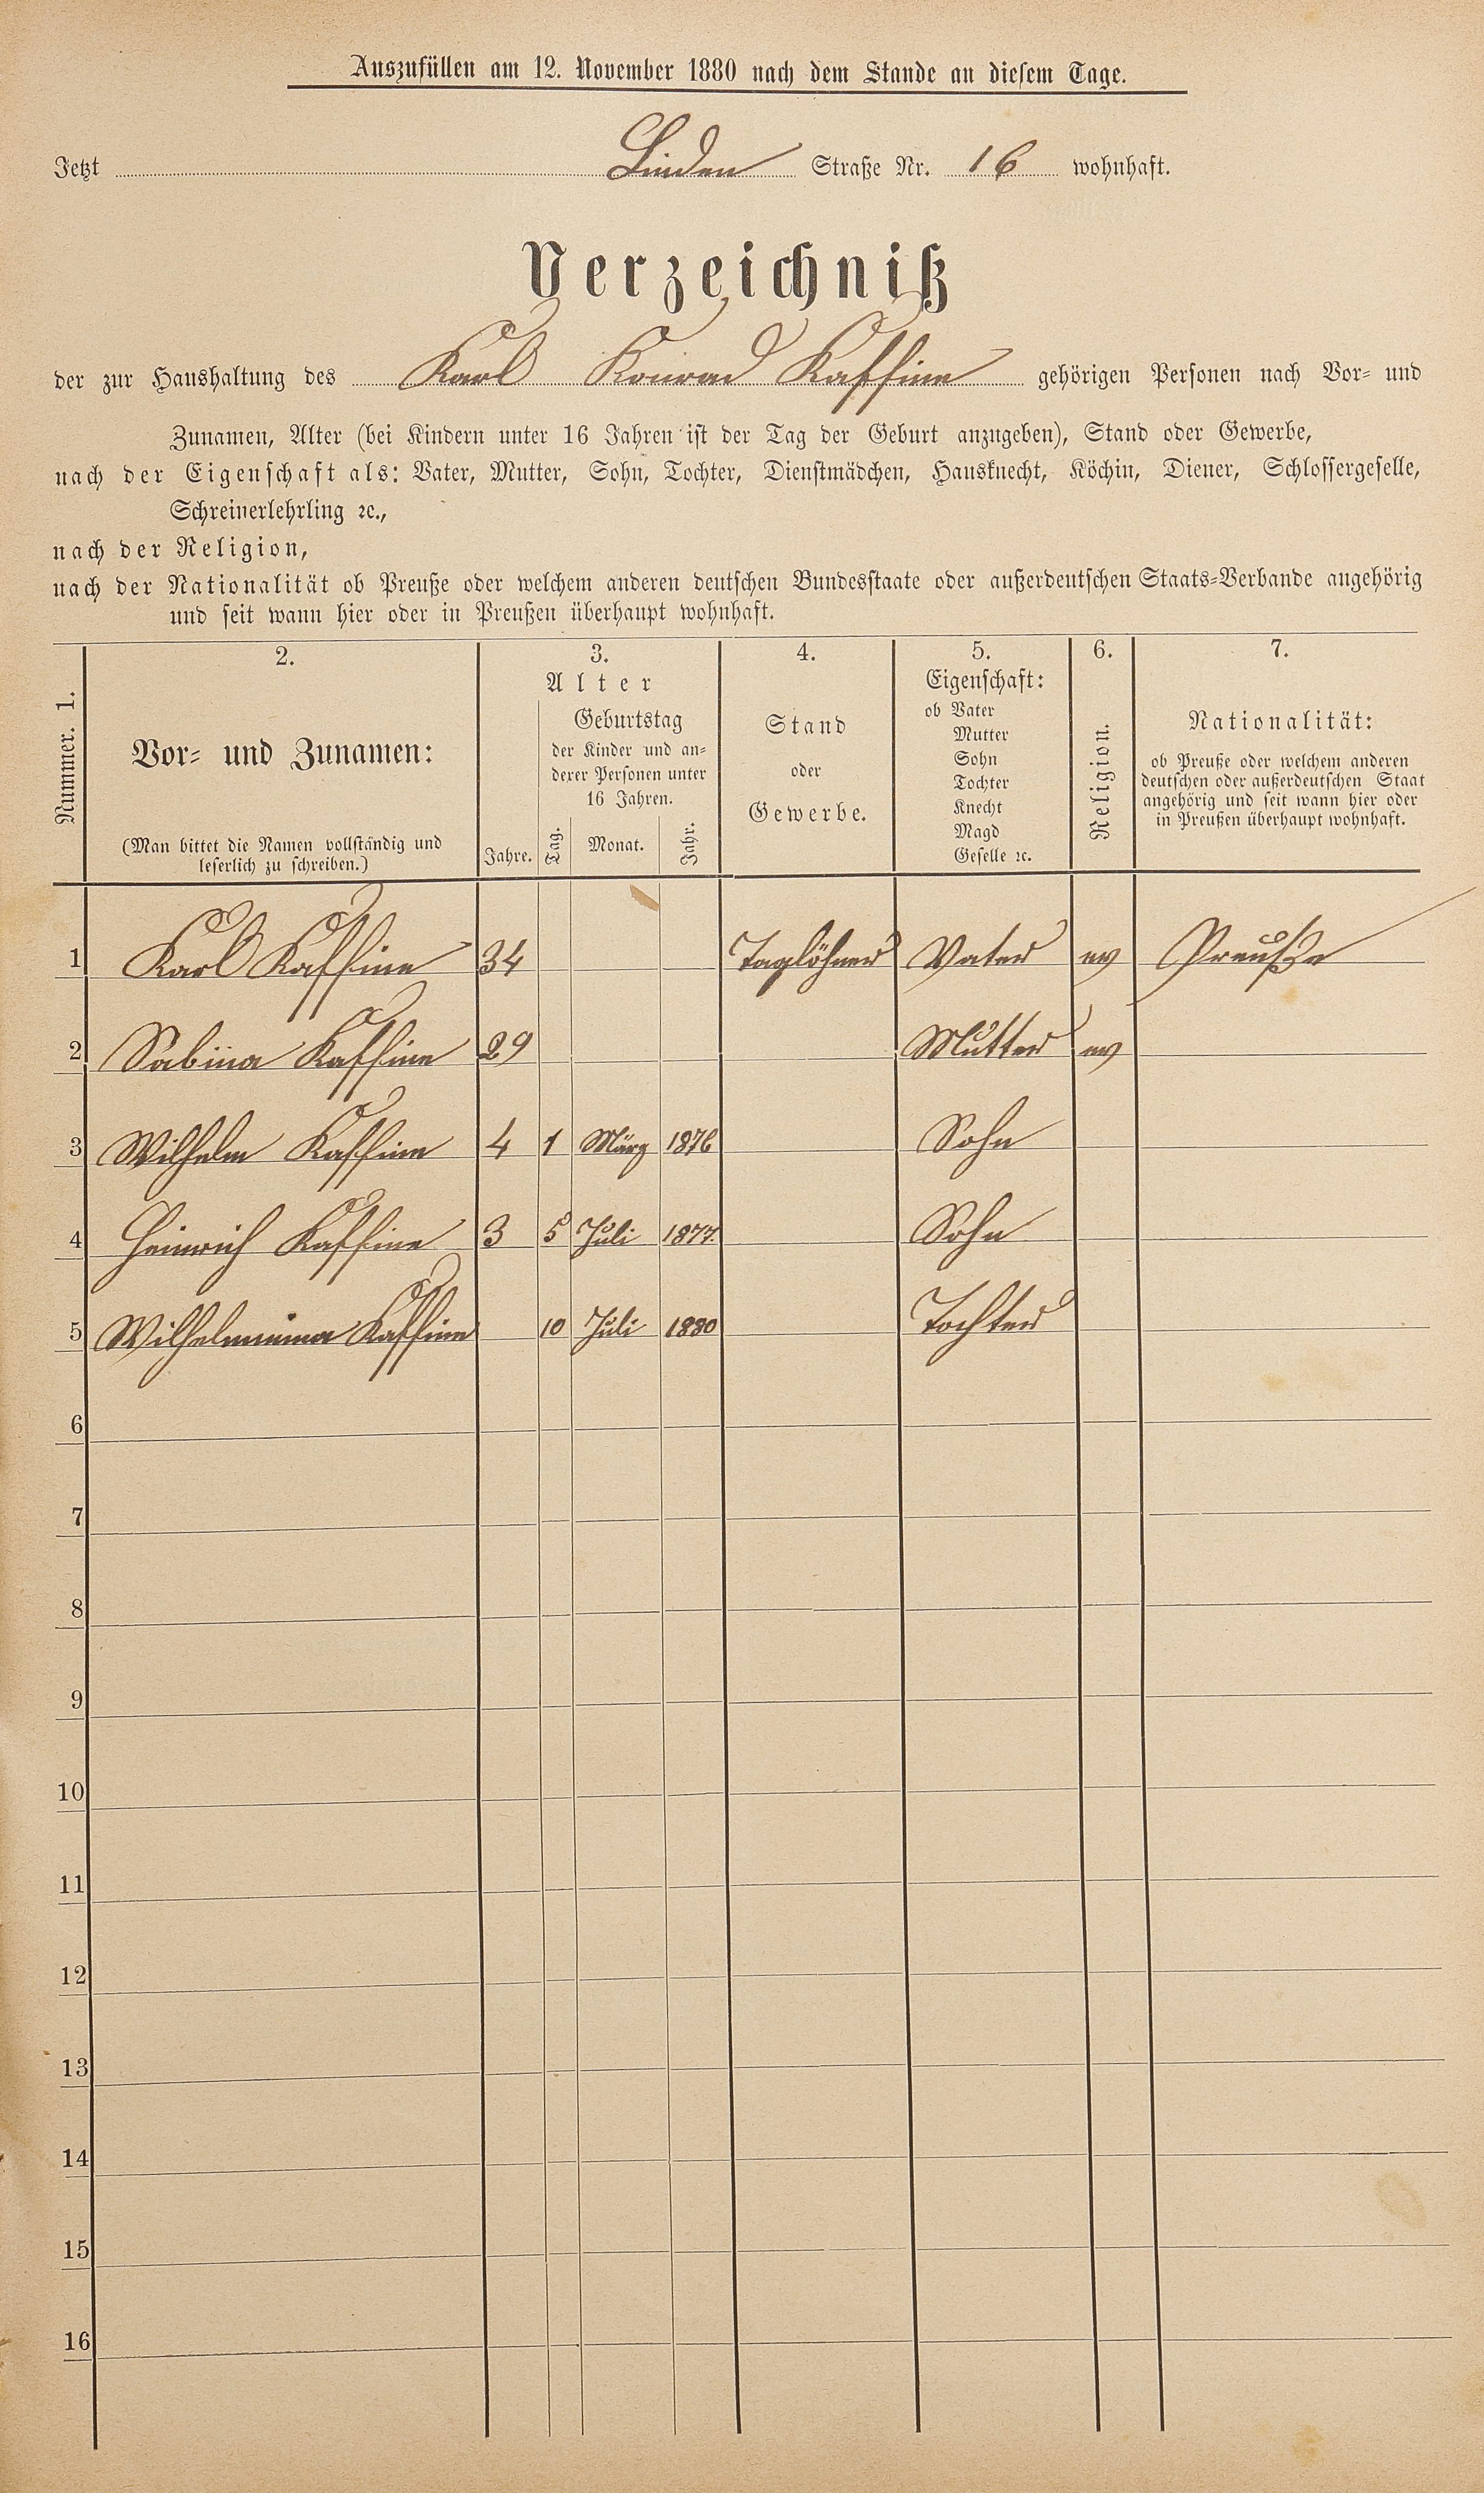 Auszufüllen am 12. November 1880 nach dem Stande an diesem Tage.
Jetzt Linden Straße Nr. 16 wohnhaft.
Verzeichniß
der zur Haushaltung des Karl Konrad Kaffine gehörigen Personen nach Vor- und
Zunamen, Alter (bei Kindern unter 16 Jahren ist der Tag der Geburt anzugeben), Stand oder Gewerbe,
nach der Eigenschaft als: Vater, Mutter, Sohn, Tochter, Dienstmädchen, Hausknecht, Köchin, Diener, Schlossergeselle,
Schreinerlehrling ꝛc.,
nach der Religion,
nach der Nationalität ob Preuße oder welchem anderen deutschen Bundesstaate oder außerdeutschen Staats-Verbande angehörig
und seit wann hier oder in Preußen überhaupt wohnhaft.
Nummer. 1.
2.
Vor- und Zunamen:
(Man bittet die Namen vollständig und
leserlich zu schreiben.)
3.
Alter
Jahre.
Geburtstag
der Kinder und an-
derer Personen unter
16 Jahren.
Tag. Monat. Jahr.
4.
Stand
oder
Gewerbe.
5.
Eigenschaft:
ob Vater
Mutter
Sohn
Tochter
Knecht
Magd
Geselle ꝛc.
6.
Religion.
7.
Nationalität:
ob Preuße oder welchem anderen
deutschen oder außerdeutschen Staat
angehörig und seit wann hier oder
in Preußen überhaupt wohnhaft.
1 Karl Kaffine 34 Taglöhner Vater ev Preuße
2 Sabina Kaffine 29 Mutter ev
3 Wilhelm Kaffine 4 1 März 1876 Sohn
4 Heinrich Kaffine 3 5 Juli 1877. Sohn
5 Wilhelmina Kaffine 10 Juli 1880 Tochter
6
7
8
9
10
11
12
13
14
15
16